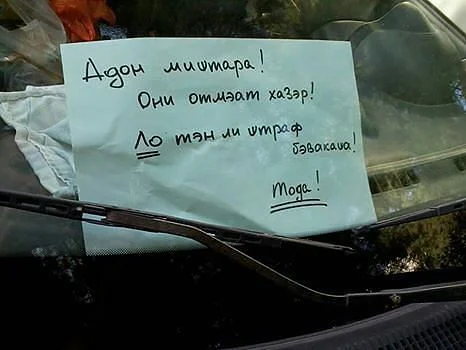 Адон миштара!
Они отмэат хаЗэр!
Ло тэн ли штраф
бэвакаша!
Тода!